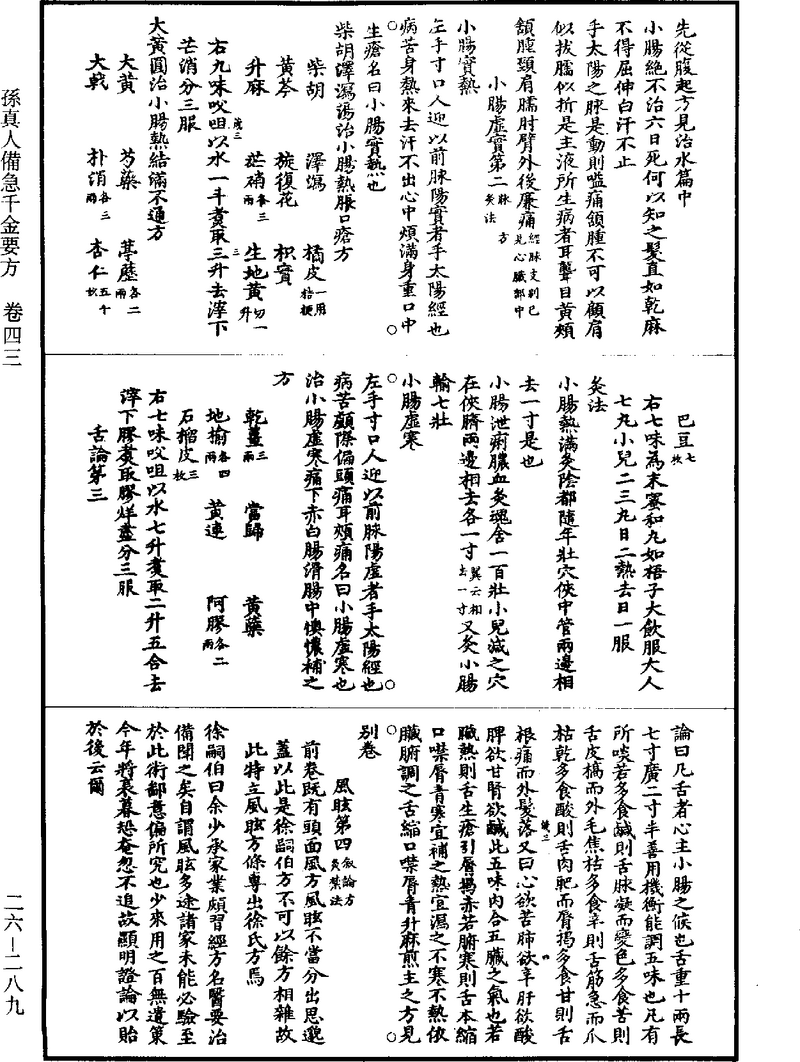 孫真人備急千金要方　卷四三
先從腹起方見治水篇中
小腸絕不治六日死何以知之髮直如乾麻
不得屈伸白汗不止
手太陽之脉是動則嗌痛頷腫不可以顧肩
似拔臑似折是主液所生病者耳聾目黃頰
頷腫頸肩臑肘臂外後廉痛經脉支別已見心臟部中
小腸虛實第二脉方灸法
小腸實熱
左手寸口人迎以前脉陽實者手太陽經也
病苦身熱來去汗不出心中煩滿身重口中
生瘡名曰小腸實熱也
柴胡澤瀉湯治小腸熱脹口瘡方
柴胡　澤瀉　橘皮一用桔梗
黃芩　旋復花　枳實
升麻　芒硝各二兩　生地黃切一升
右九味㕮咀以水一斗煑取三升去滓下
芒消分三服
大黃圓治小腸熱結滿不通方
大黃　芍藥各三兩　葶藶各二兩
大戟　朴消各三兩　杏仁五十枚
巴豆七枚
右七味為末蜜和丸如梧子大飲服大人
七丸小兒二三丸日二熱去日一服
灸法
小腸熱滿灸陰都隨年壯穴俠中管兩邊相
去一寸是也
小腸泄痢膿血灸魂舍一百壯小兒減之穴
在俠臍兩邊相去各一寸翼云相去一寸又灸小腸
輸七壯
小腸虛寒
左手寸口人迎以前脉陽虛者手太陽經也
病苦顱際偏頭痛耳頰痛名曰小腸虛寒也
治小腸虛寒痛下赤白腸滑腸中懊憹補之
方
乾薑三兩　當歸　黃蘗
地榆各四兩　黃連　阿膠各二兩
石榴皮三枚
右七味㕮咀以水七升煑取二升五合去
滓下膠煑取膠烊盡分三服
舌論第三
論曰凡舌者心主小腸之候也舌重十兩長
七寸廣二寸半善用機衡能調五味也凡有
所啖若多食鹹則舌脉凝而變色多食苦則
舌皮槁而外毛焦枯多食辛則舌筋急而爪
枯乾多食酸則舌肉肥而脣揭多食甘則舌
根痛而外髮落又曰心欲苦肺欲辛肝欲酸
脾欲甘腎欲鹹此五味內合五臟之氣也若
臟熱則舌生瘡引脣揭赤若腑寒則舌本縮
口噤脣青寒宜補之熱宜瀉之不寒不熱依
臟腑調之舌縮口噤脣青升麻煎主之方見
別卷
風眩第四叙論方灸禁法
前卷既有頭面風方風眩不當分出思邈
蓋以此是徐嗣伯方不可以餘方相雜故
此特立風眩方條專出徐氏方焉
徐嗣伯曰余少承家業頗習經方名醫要治
備聞之矣自謂風眩多途諸家未能必驗至
於此術鄙意偏所究也少來用之百無遺策
今年將衰暮恐奄忽不追故顯明證論以貽
於後云爾
二六－二八九